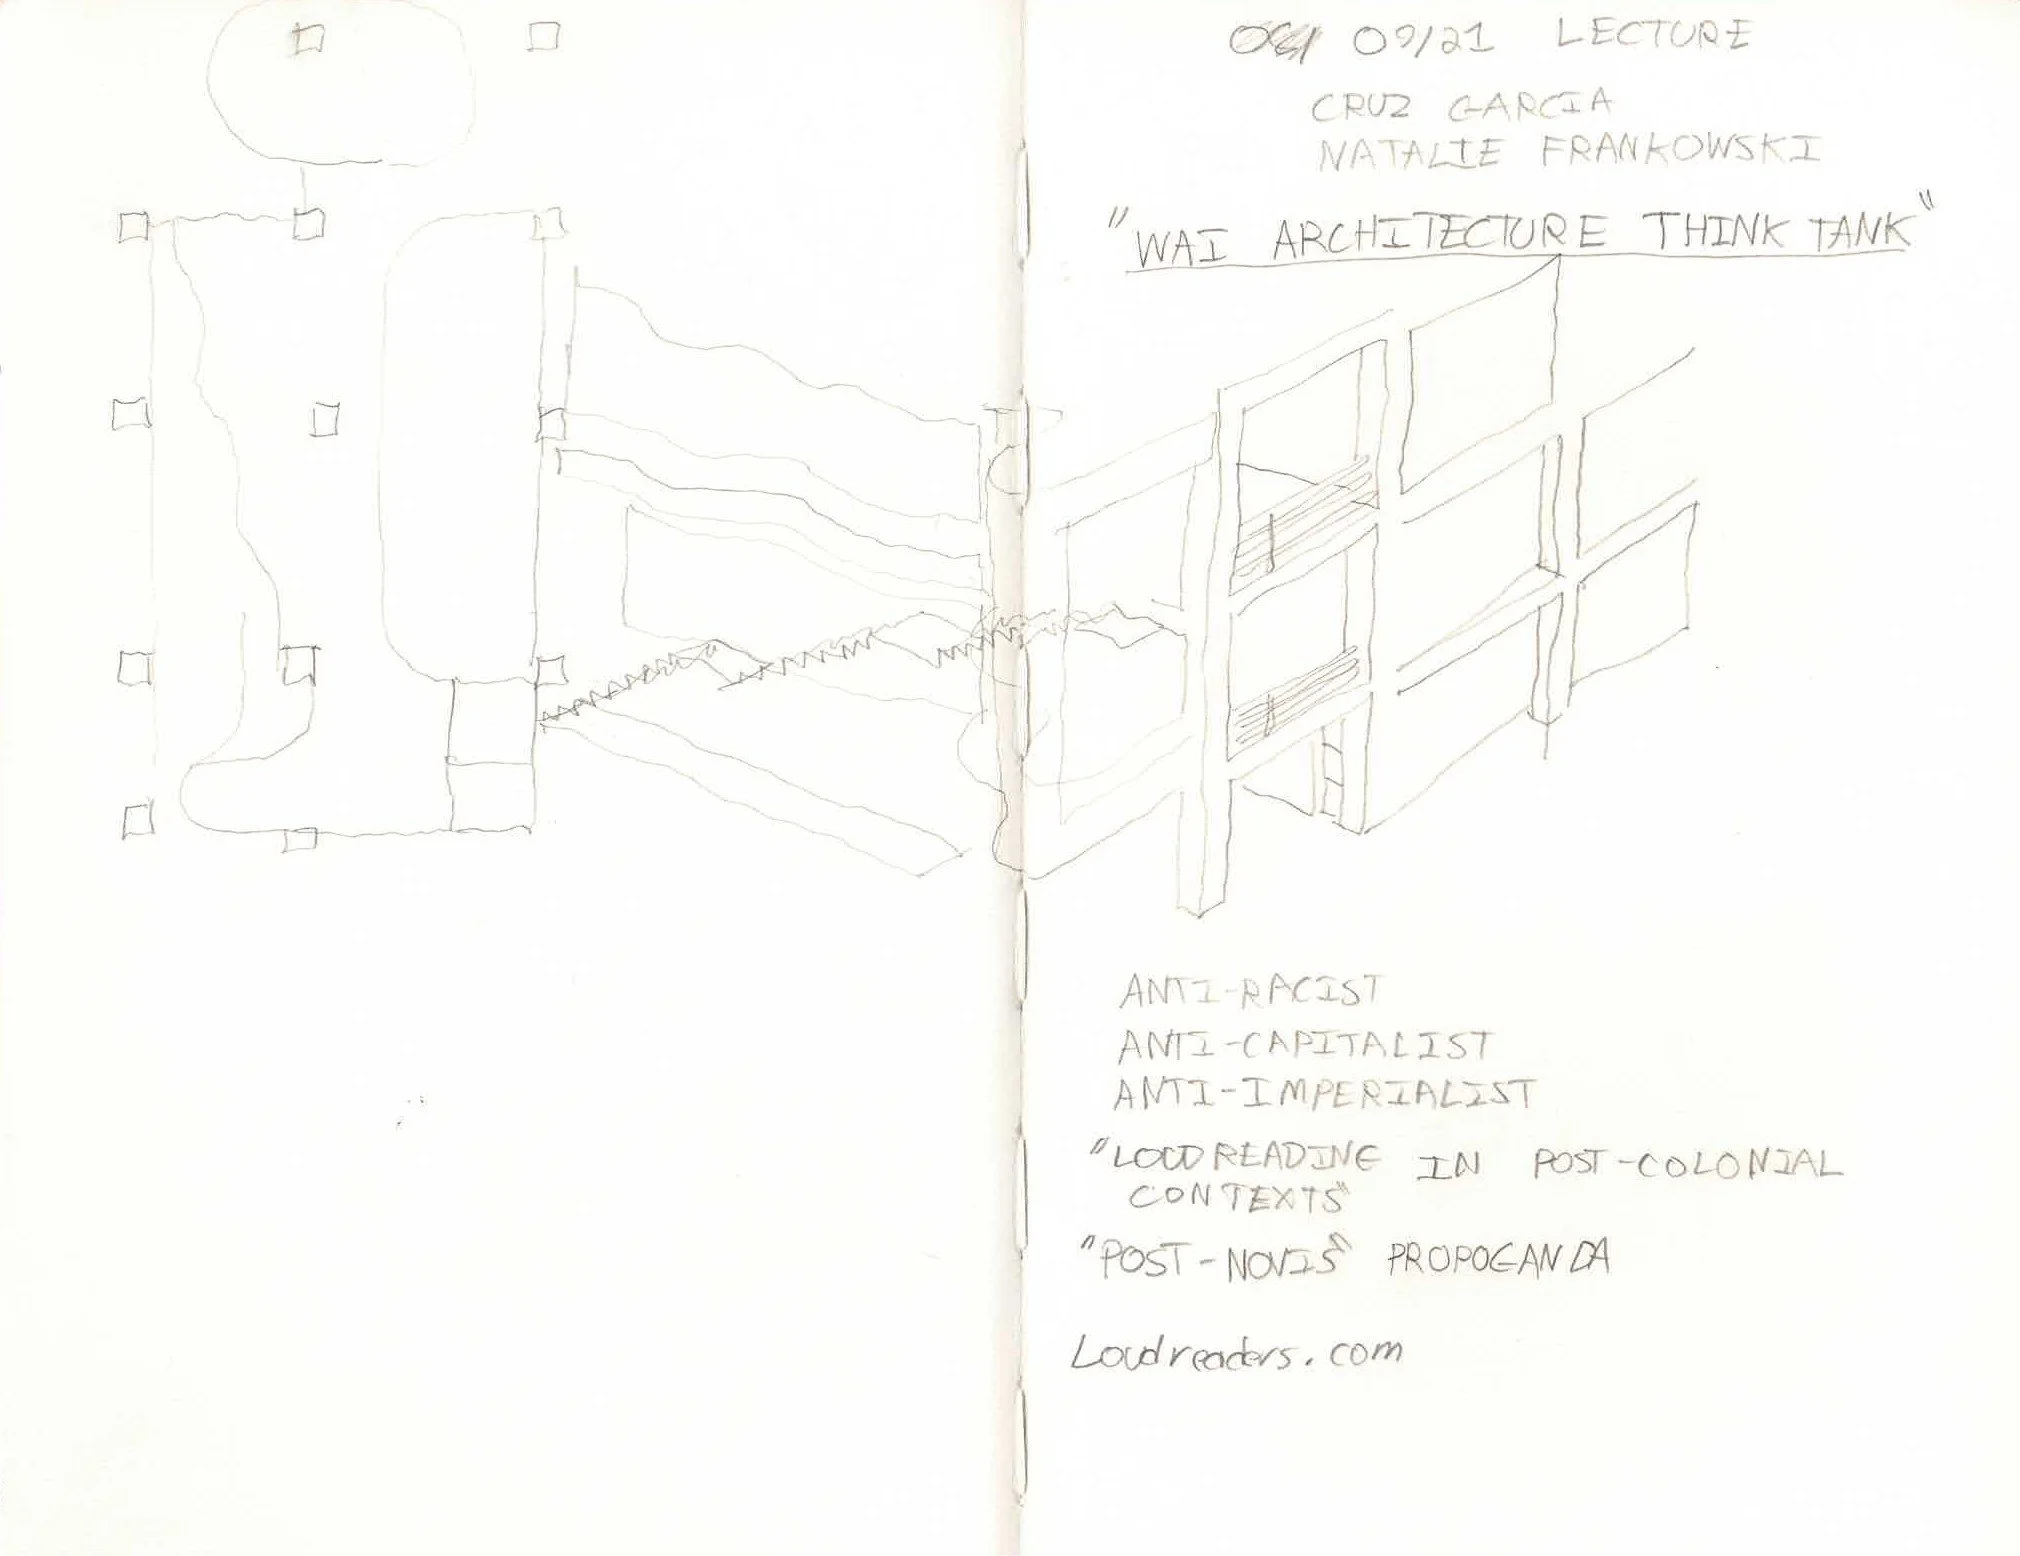 09/21 LECTURE
CRUZ GARCIA
NATALIE FRANKOWSKI
"WAI ARCHITECTURE THINK TANK"
ANTI-RACIST
ANTI-CAPITALIST
ANTI-IMPERIALIST
"LOUDREADING IN POST-COLONIAL
CONTEXTS"
"POST-NOVIS" PROPOGANDA
Loudreaders.com